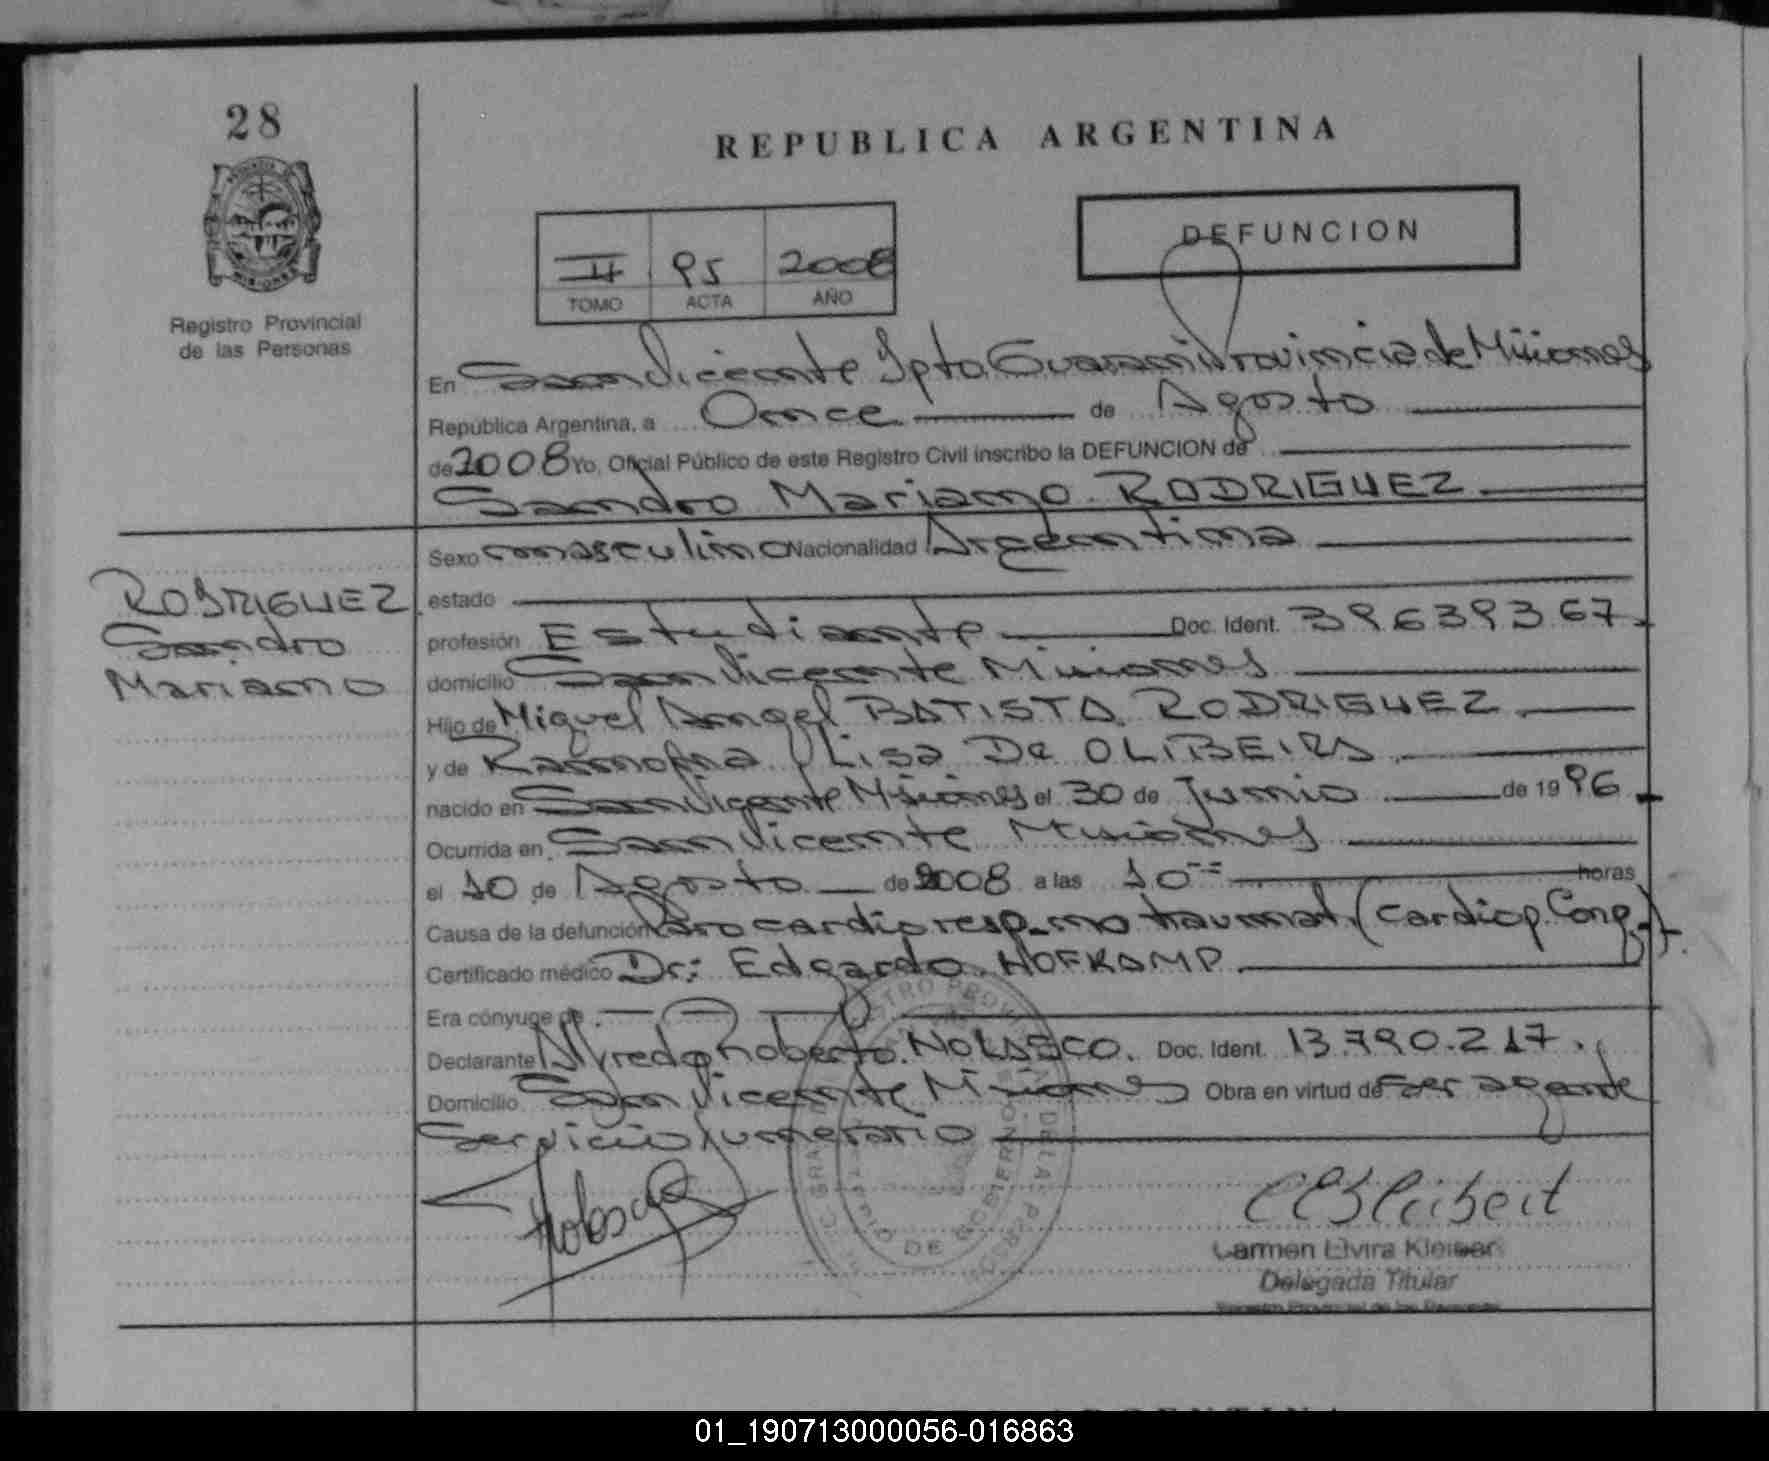 28
REPUBLICA ARGENTINA
DEFUNCION
II 95 2008
TOMO ACTA AÑO
Registro Provincial
de las Personas
En San Vicente Dpto Guarani Provincia de Misiones
República Argentina, a Once de Agosto
de 2008 Yo, Oficial Público de este Registro Civil inscribo la DEFUNCION de
Sandro Mariano RODRIGUEZ
Sexo masculino Nacionalidad Argentina
RODRIGUEZ
Sandro
Mariano
estado
profesión Estudiante Doc. Ident. 39639367
domicilio San Vicente Misiones
Hijo de Miguel Angel BATISTA RODRIGUEZ
y de Ramona Lisa De OLIBEIRA
nacido en San Vicente Misiones el 30 de Junio de 1996
Ocurrida en San Vicente Misiones
el 10 de Agosto de 2008 a las 10 horas
Causa de la defunción Paro cardio resp. no traumat. (Cardiop. Cong.)
Certificado médico Dr: Edgardo HOFKAMP
Era cónyuge de
Declarante Alfredo Roberto NOLASCO. Doc. Ident. 13.790.217.
Domicilio San Vicente Misiones Obra en virtud de ser agente
Servicio funerario
Carmen Elvira Kleiber
Delegada Titular
Registro Provincial de las Personas
ARGENTINA
01_190713000056-016863